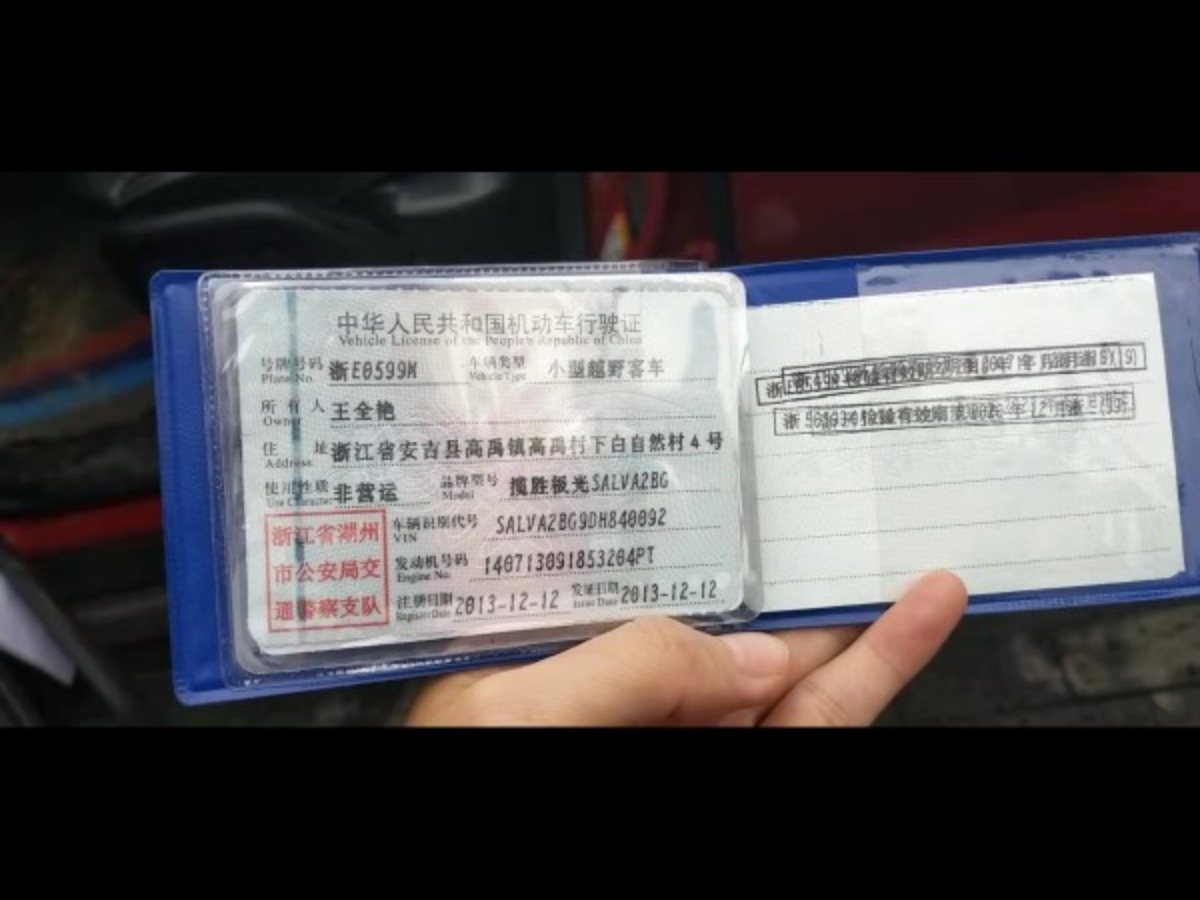 中华人民共和国机动车行驶证
Vehicle License of the People's Republic of China
号牌号码 Plate No. 浙E0599M 车辆类型 Vehicle Type 小型越野客车
所有人 Owner 王全艳
住址 Address 浙江省安吉县高禹镇高禹村下白自然村4号
使用性质 Use Character 非营运 品牌型号 Model 揽胜极光SALVA2BG
车辆识别代号 VIN SALVA2BG9DH840092
发动机号码 Engine No. 140713091853204PT
注册日期 Register Date 2013-12-12 发证日期 Issue Date 2013-12-12
浙江省湖州
市公安局交
通警察支队
浙
浙 检验有效期 年12月